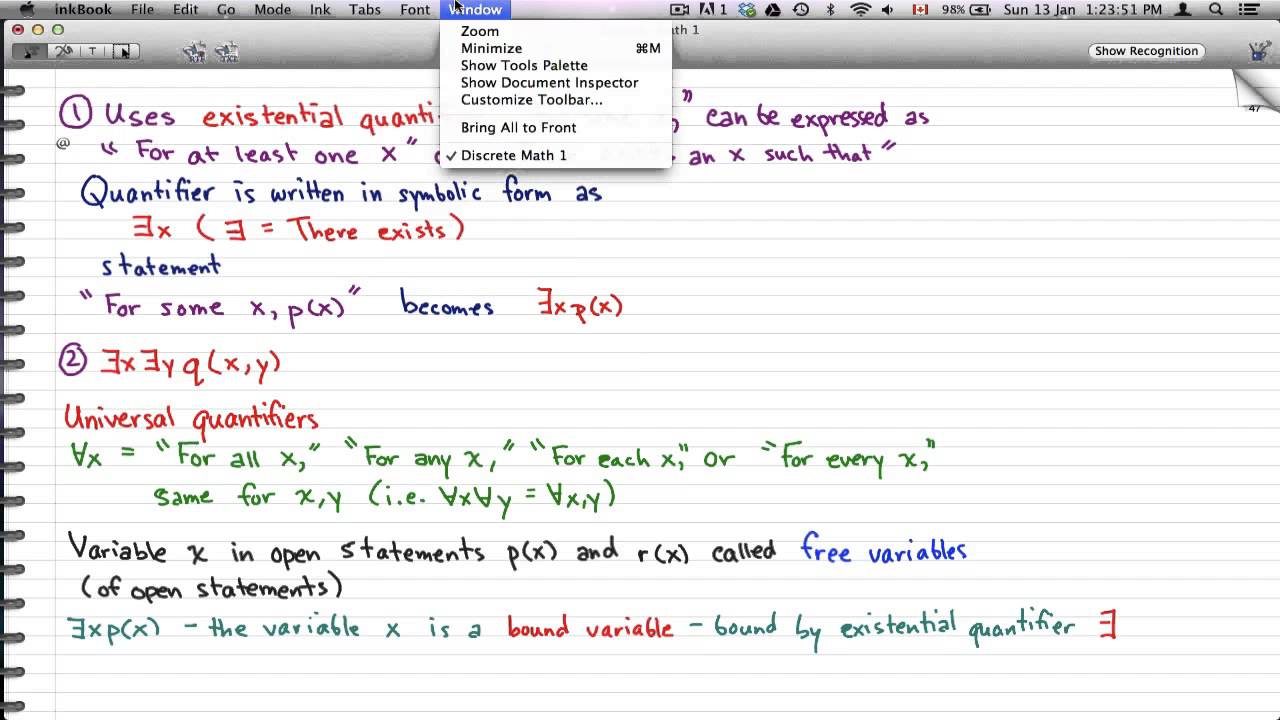 inkBook File Edit Go Mode Ink Tabs Font Window 1 98% Sun 13 Jan 1:23:51 PM
th 1
T Show Recognition
Zoom
Minimize ⌘M
Show Tools Palette
Show Document Inspector
Customize Toolbar...
Bring All to Front
✓ Discrete Math 1
47
① Uses existential quanti x," can be expressed as
@
"For at least one x" an x such that"
Quantifier is written in symbolic form as
∃x (∃ = There exists)
statement
"For some x, p(x)" becomes ∃x p(x)
② ∃x ∃y q(x,y)
Universal quantifiers
∀x = "For all x," "For any x," "For each x," or "For every x,"
same for x,y (i.e. ∀x∀y = ∀x,y)
Variable x in open statements p(x) and r(x) called free variables
(of open statements)
∃x p(x) - the variable x is a bound variable - bound by existential quantifier ∃